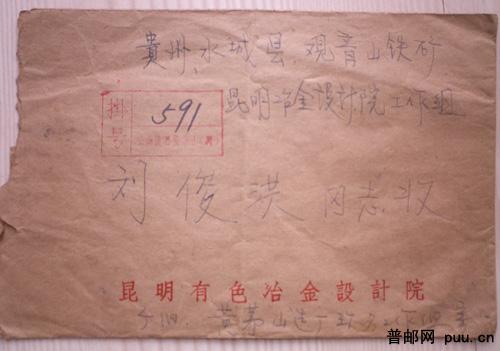 貴州 水城县 观音山铁矿
昆明冶金設計院工作组
掛号
591
刘俊洪 同志收
昆明有色冶金設計院
普邮网 puu.cn